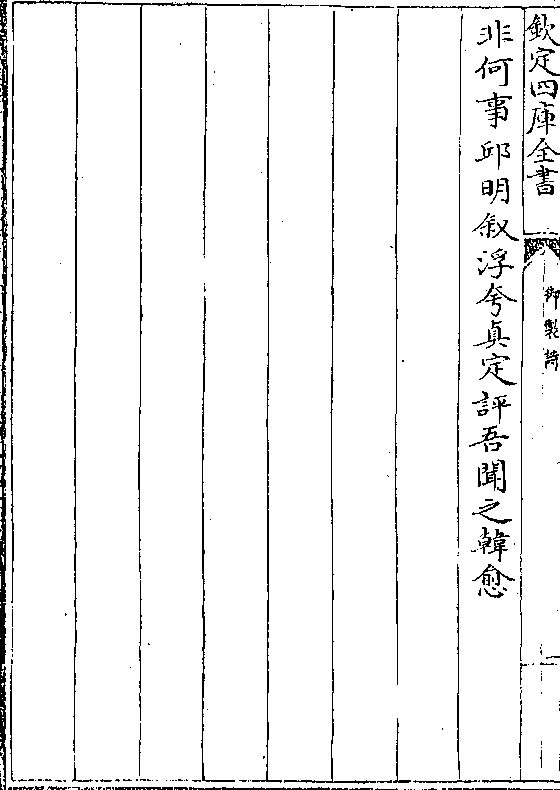 欽定四庫全書
御製詩
非何事邱明叙浮夸真定評吾聞之韓愈